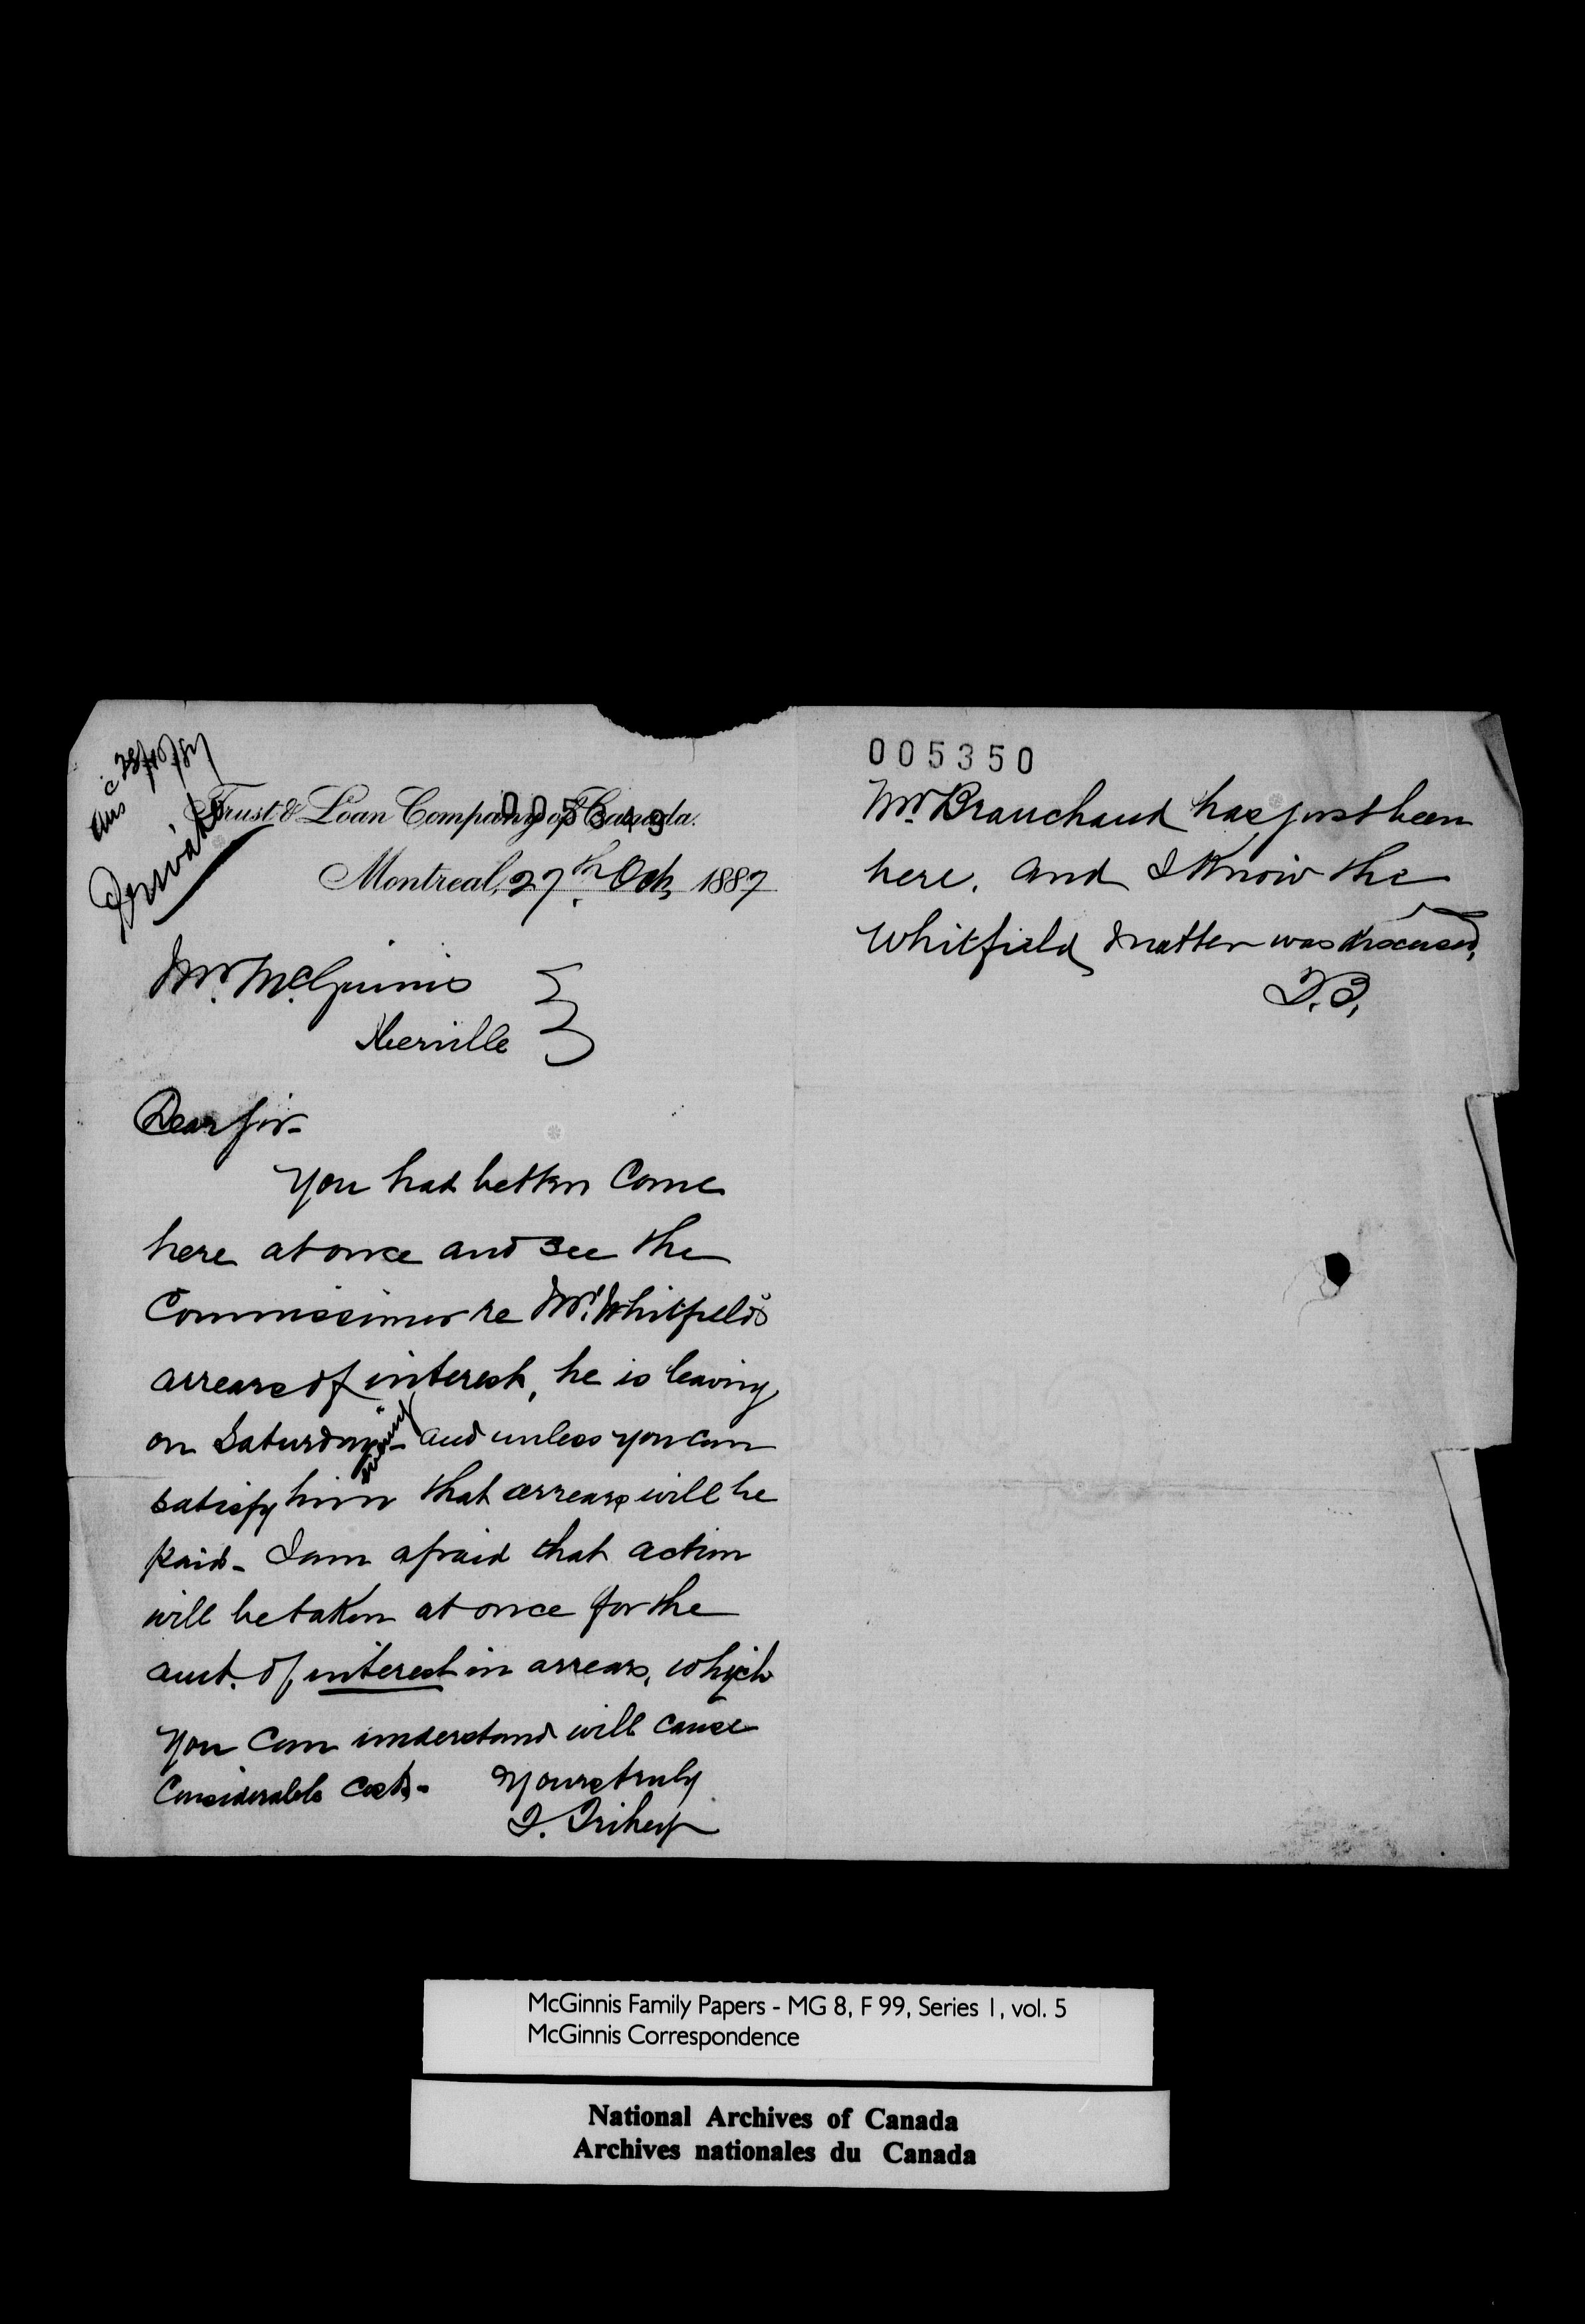 Ans c 28/10/87
Private
005349
Trust & Loan Company of Canada.
Montreal, 27th Oct, 1887
Mr. McGinnis
Iberville
Dear Sir-
You had better come
here at once and see the
Commissioner re Mr. Whitfield's
arrears of interest, he is leaving
on Saturday evening - and unless you can
satisfy him that arrears will be
paid - I am afraid that action
will be taken at once for the
amt. of interest in arrears, which
you can understand will cause
Considerable costs -
Yours truly
005350
Mr. Brauchaud has just been
here. and I know the
Whitfield matter was discussed,
McGinnis Family Papers - MG 8, F 99, Series 1, vol. 5
McGinnis Correspondence
National Archives of Canada
Archives nationales du Canada